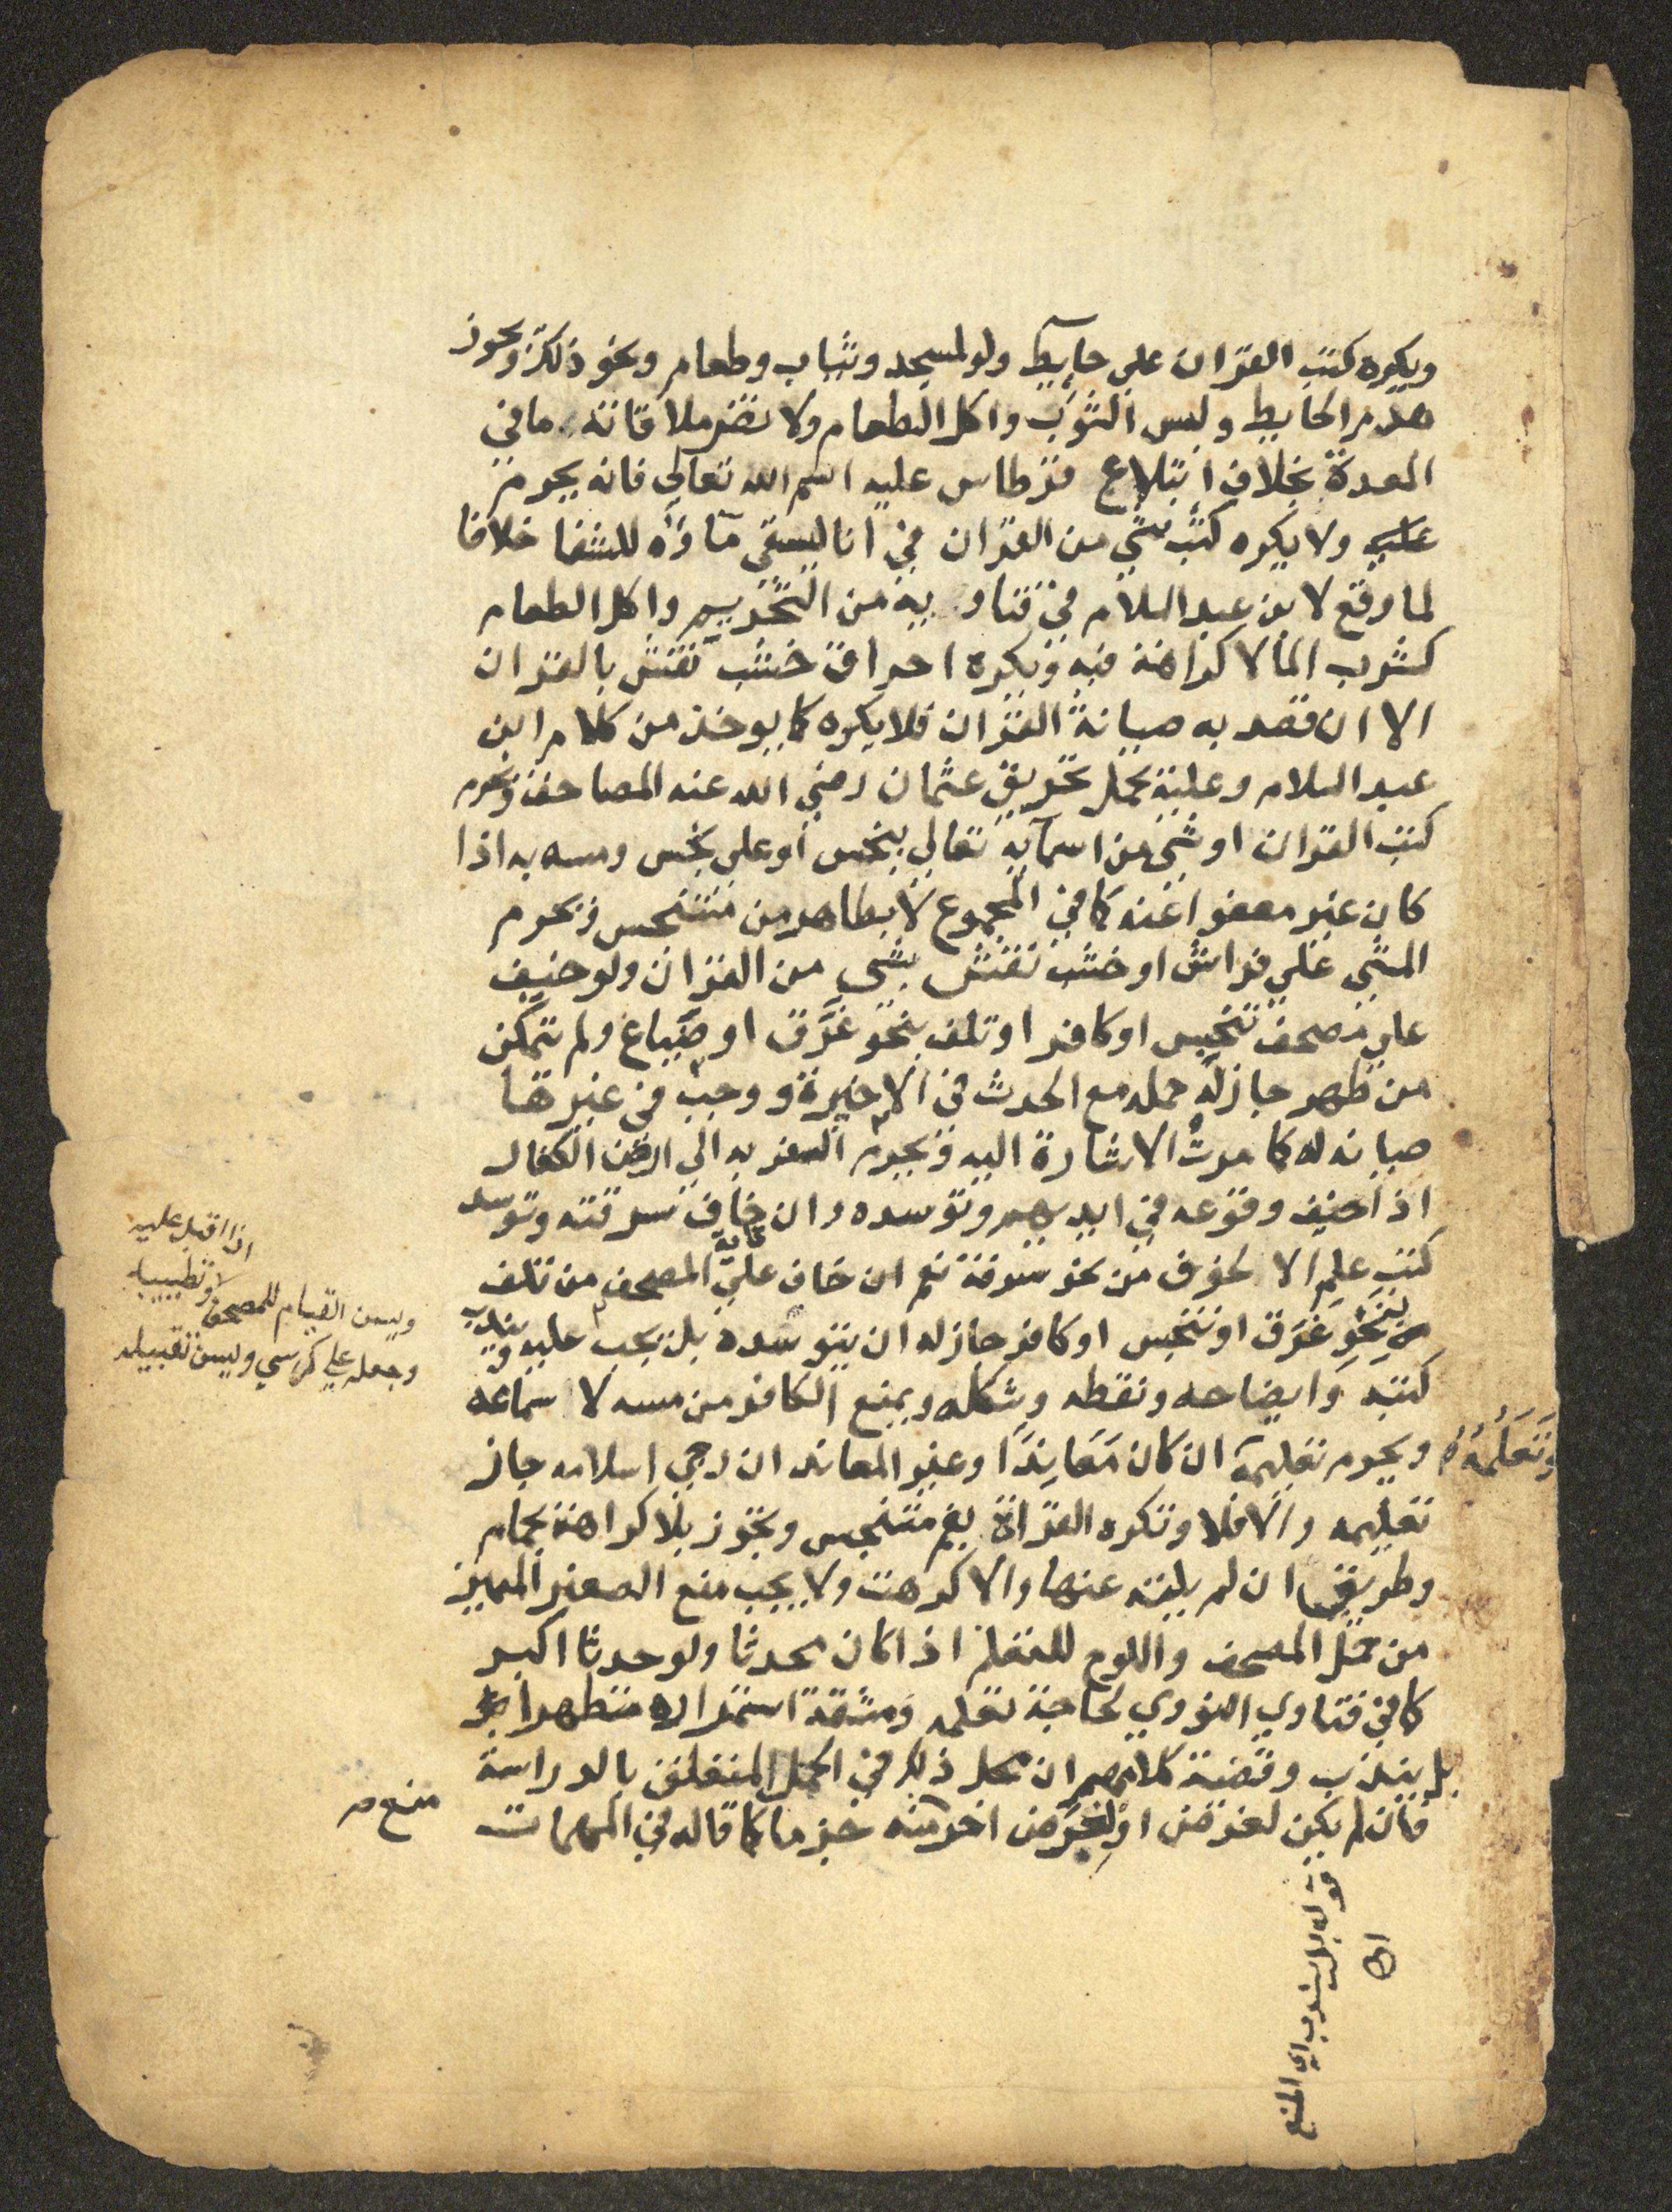 ويكره كتب القران على حايط ولو لمسجد وثياب وطعام ونحو ذلك ويجوز
هدم الحايط ولبس الثوب واكل الطعام ولا تضر ملاقاته ما في
المعدة بخلاف ابتلاع قرطاس عليه اسم الله تعالي فانه يحرم
عليه ولا يكره كتب شي من القران في انا ليسقي ماؤه للشفا خلافا
لما وقع لابن عبد السلام في فتاويه من التحريم واكل الطعام
كشرب الما لا كراهة فيه ويكره احراق خشب نقش بالقران
الا ان قصد به صيانة القران فلا يكره كما يوخذ من كلام ابن
عبد السلام وعليه يحمل تحريق عثمان رضي الله عنه المصاحف ويحرم
كتب القران او شي من اسمايه تعالي بنجس او على نجس ومسه به اذا
كان غير معفوا عنه كما في المجموع لا بطاهر من متنجس ويحرم
المشي على فراش او خشب نقش بشي من القران ولو خيف
على مصحف تنجس او كافر او تلف بنحو غرق او ضياع ولم يتمكن
من تطهر جاز له حمله مع الحدث في الاخيرة ووجب في غيرها
صيانة له كما مرت الاشارة اليه ويحرم السفر به الى ارض الكفار
اذا خيف وقوعه في ايديهم وتوسده وان خاف سرقته وتوسد
كتب علم الا لخوف من نحو سرقة نعم ان خاف على المصحف من تلف
بنحو غرق او تنجس او كافر جاز له ان يتوسده بل يجب عليه ويندب
كتبه وايضاحه ونقطه وشكله ويمنع الكافر من مسه لا سماعه
ويحرم تعليمه وتعلمه ان كان معاندا وغير المعاند ان رجي اسلامه جاز
تعليمه والا فلا وتكره القراة بفم متنجس وتجوز بلا كراهة بحمام
وطريق ان لم يلته عنها والا كرهت ولا يجب منع الصغير المميز
من حمل المصحف واللوح للتعلم اذا كان محدثا ولو حدثا اكبر
كما في فتاوي النووي لحاجة تعلمه ومشقة استمراره متطهرا
بل يندب وقضية كلامهم ان محل ذلك في الحمل المتعلق بالدراسة
فان لم يكن لغرض او لغرض اخر منع منه جزما كما قاله في المهمات
اذا اقبل عليه
وتطييبه
ويسن القيام للمصحف
وجعله على كرسي ويسن تقبيله
قوله بل يندب اي المنع